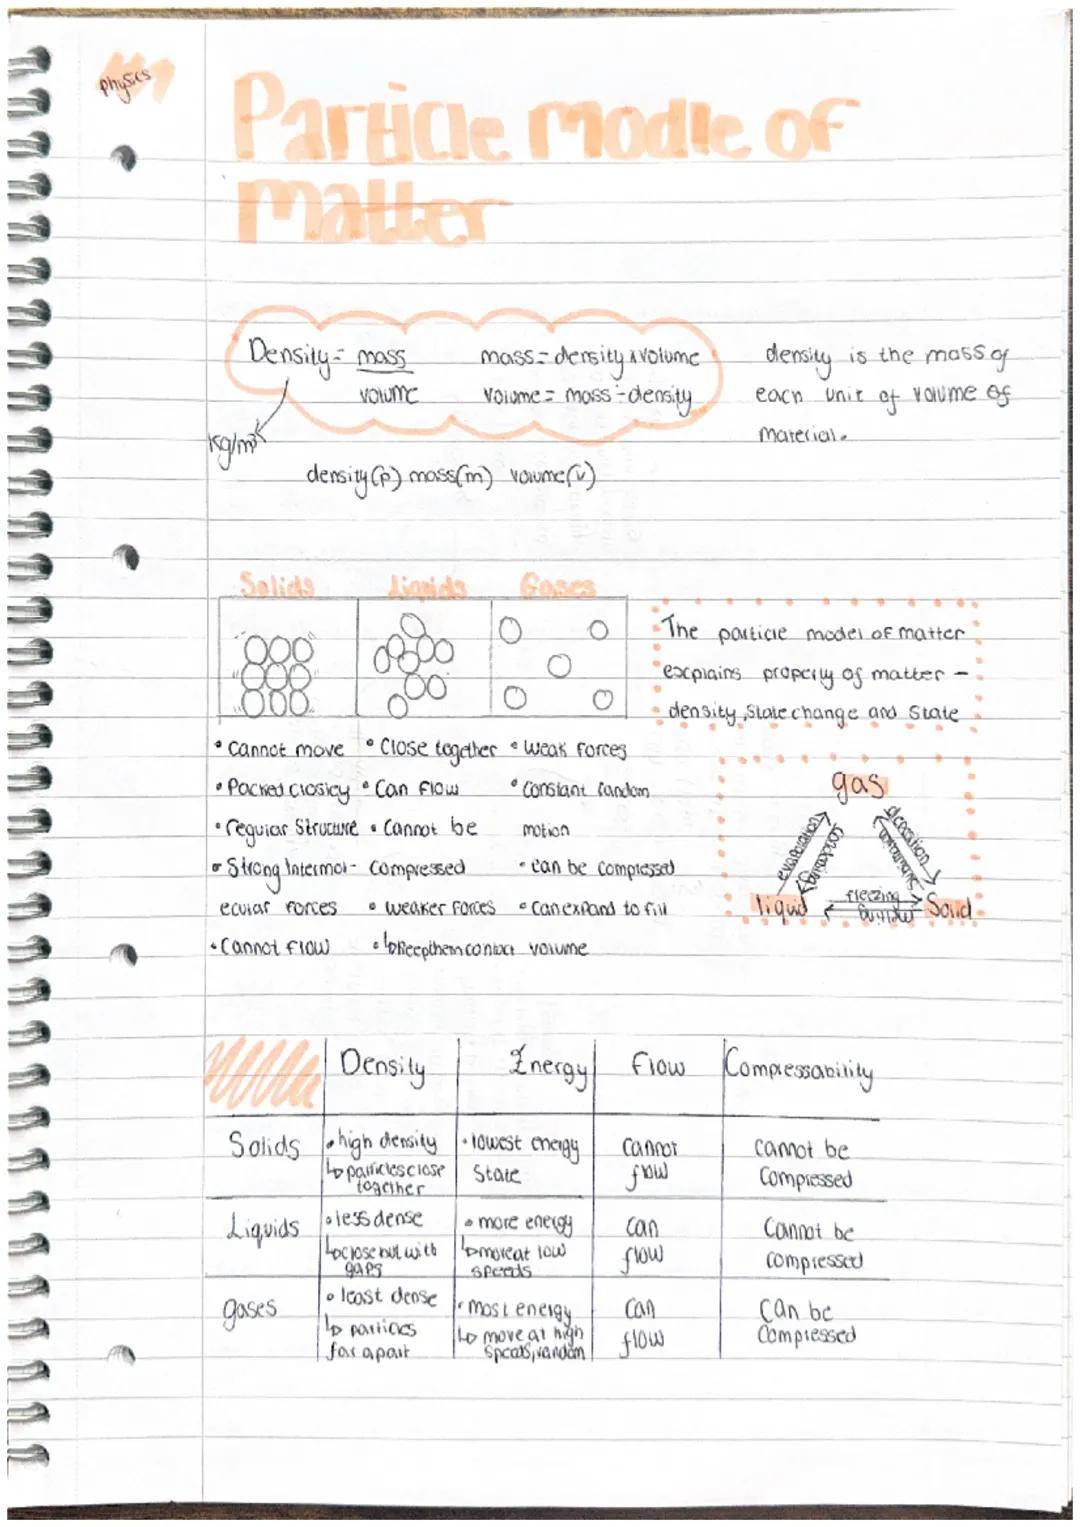 physics
Particle modle of
matter
Density = mass
volume
mass = density x volume
volume = mass ÷ density
kg/m³
density is the mass of
each unit of volume of
material.
density (p) mass (m) volume (v)
Solids Liquids Gases
The particle model of matter
explains property of matter -
density, state change and state
• Cannot move
• Packed closley
• regular structure
• Strong Intermol-
ecular forces
• Cannot flow
• Close together
• Can flow
• Cannot be
compressed
• weaker forces
• ↳ keep them contact
• weak forces
• Constant random
motion
• can be compressed
• Can expand to fill
volume
gas
evaporation
freezing
liquid
Solid
Density Energy flow Compressability
Solids
• high density
↳ particles close
together
• lowest energy
State
cannot
flow
cannot be
compressed
Liquids
• less dense
↳ close but with
gaps
• more energy
↳ move at low
speeds
can
flow
Cannot be
compressed
gases
• least dense
↳ particles
far apart
• most energy
↳ move at high
speeds, random
can
flow
can be
compressed